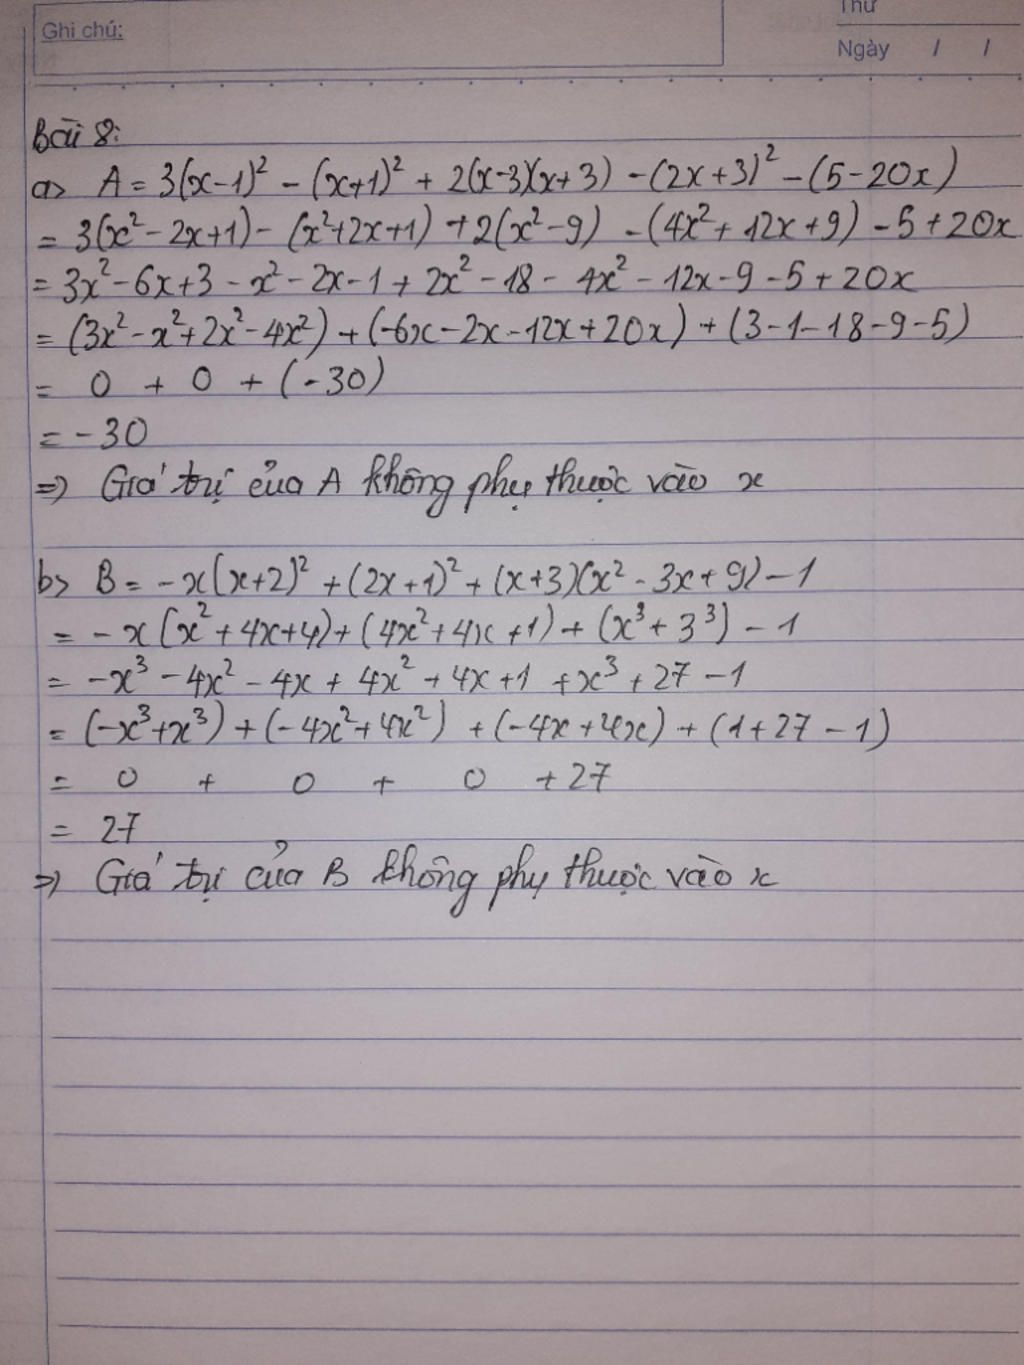 Ghi chú:
Thứ
Ngày / /
Bài 8:
a> A = 3(x-1)² - (x+1)² + 2(x-3)(x+3) - (2x+3)² - (5-20x)
= 3(x² - 2x+1) - (x²+2x+1) + 2(x²-9) - (4x² + 12x+9) - 5 + 20x
= 3x² - 6x + 3 - x² - 2x - 1 + 2x² - 18 - 4x² - 12x - 9 - 5 + 20x
= (3x² - x² + 2x² - 4x²) + (-6x - 2x - 12x + 20x) + (3-1-18-9-5)
= 0 + 0 + (-30)
= -30
=> Giá trị của A không phụ thuộc vào x
b> B = -x(x+2)² + (2x+1)² + (x+3)(x² - 3x + 9) - 1
= -x(x² + 4x+4) + (4x² + 4x + 1) + (x³ + 3³) - 1
= -x³ - 4x² - 4x + 4x² + 4x + 1 + x³ + 27 - 1
= (-x³+x³) + (-4x²+4x²) + (-4x + 4x) + (1 + 27 - 1)
= 0 + 0 + 0 + 27
= 27
=> Giá trị của B không phụ thuộc vào x